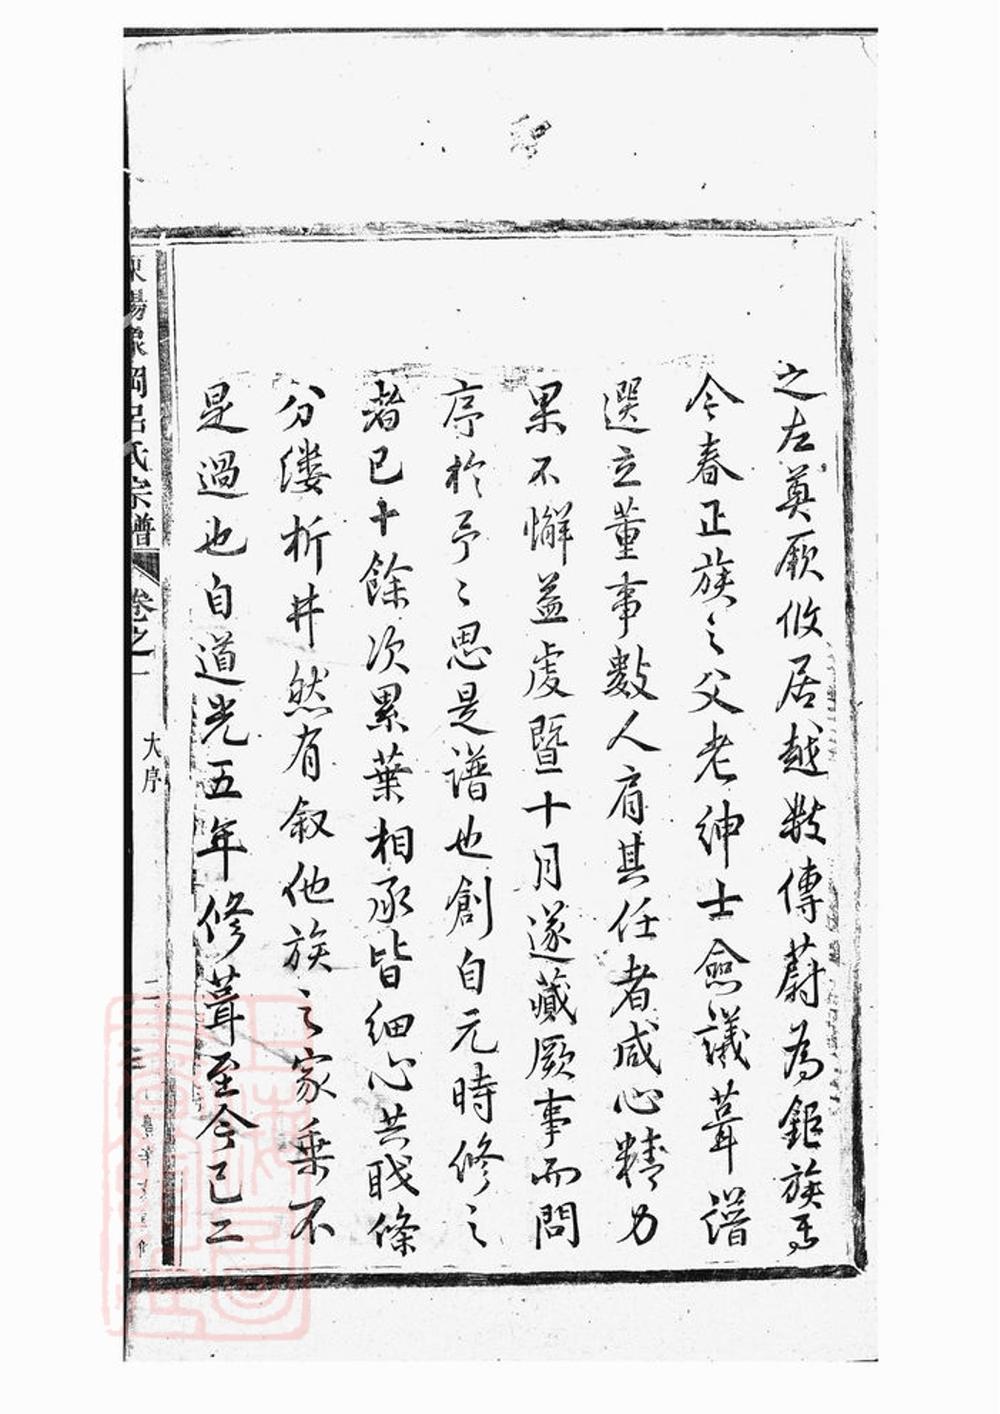 之左奠厥攸居越数傳蔚為鉅族焉
今春正族之父老紳士僉議葺譜
選立董事數人肩其任者咸心精力
果不懈益虔暨十月遂蕆厥事而問
序於予々思是譜也創自元時修之
者已十餘次累葉相承皆細心共戝條
分縷析井然有叙他族之家乘不
是過也自道光五年修葺至今已二
東陽像岡呂氏宗譜 卷之一
大序